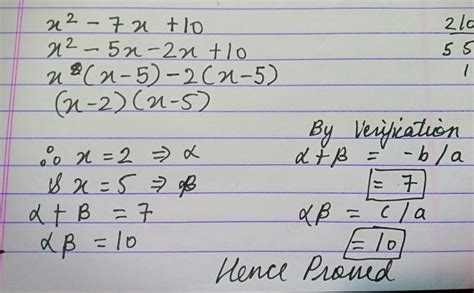 x² - 7x + 10
x² - 5x - 2x + 10
x(x-5) - 2(x-5)
(x-2)(x-5)
2 10
5 5
1
∴ x = 2 ⇒ α
& x = 5 ⇒ β
α + β = 7
αβ = 10
By Verification
α + β = -b/a
= 7
αβ = c/a
= 10
Hence Proved